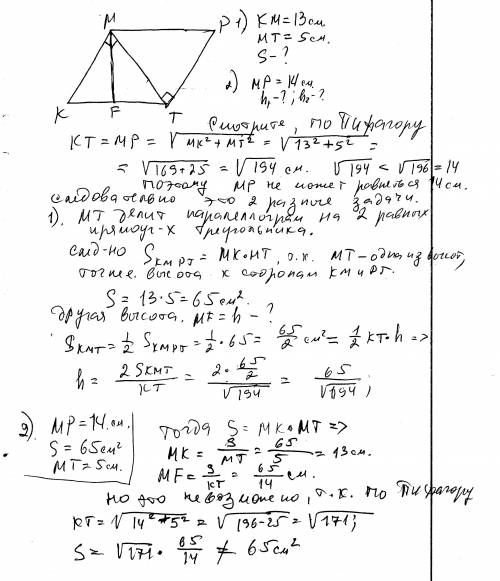 M P 1) KM = 13 см.
MT = 5 см.
S - ?
2) MP = 14 см.
h₁ - ? ; h₂ - ?
K F T
Смотрите, по Пифагору
KT = MP = √MK² + MT² = √13² + 5² =
= √169 + 25 = √194 см. √194 < √196 = 14
Поэтому MP не может равняться 14 см.
следовательно это 2 разные задачи.
1). MT делит параллелограм на 2 равных
прямоуг-х треугольника.
след-но S KMPT = MK · MT, т.к. MT - одна из высот,
точнее высота к сторонам KM и PT.
S = 13 · 5 = 65 см².
Другая высота. MF = h - ?
S KMT = 1/2 S KMPT = 1/2 · 65 = 65/2 см² = 1/2 KT · h =>
h = 2 S KMT / KT = 2 · 65/2 / √194 = 65/√194 ;
2). MP = 14 см.
S = 65 см²
MT = 5 см.
Тогда S = MK · MT =>
MK = S/MT = 65/5 = 13 см.
MF = S/KT = 65/14 см.
Но это невозможно, т.к. по Пифагору
KT = √14² + 5² = √196 - 25 = √171 ;
S = √171 · 65/14 ≠ 65 см²